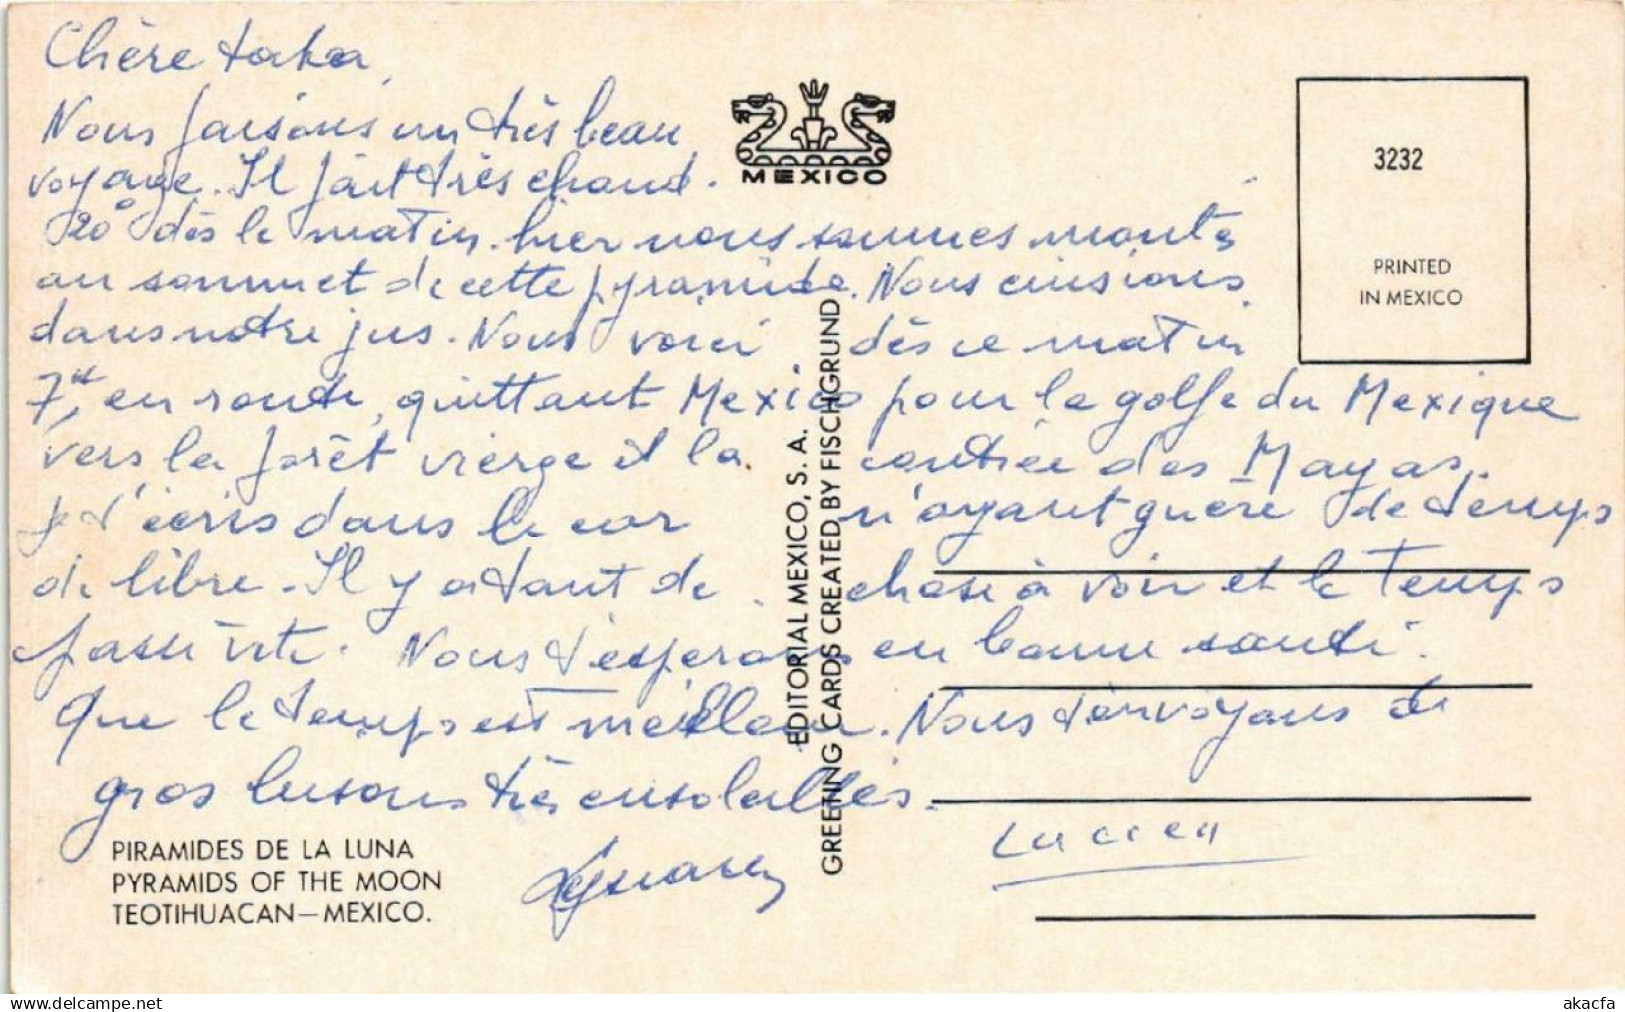 Chère taka,
Nous faisons un très beau
voyage. Il fait très chaud.
20° dès le matin. hier nous sommes montés
au sommet de cette pyramide. Nous cuisions
dans notre jus. Nous voici dès ce matin
7h, en route, quittant Mexico pour le golfe du Mexique
vers la forêt vierge et la contrée des Mayas.
je t'écris dans le car n'ayant guère de temps
de libre. Il y a tant de chose à voir et le temps
passe vite. Nous t'esperons en bonne santé.
Que le temps est meilleur. Nous t'envoyons de
gros bisous très ensoleillés.
Lucien
MEXICO
3232
PRINTED
IN MEXICO
EDITORIAL MEXICO, S. A.
GREETING CARDS CREATED BY FISCHGRUND
PIRAMIDES DE LA LUNA
PYRAMIDS OF THE MOON
TEOTIHUACAN—MEXICO.
www.delcampe.net
akacfa